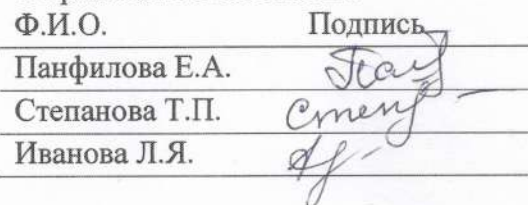 Ф.И.О. Подпись
Панфилова Е.А.
Степанова Т.П. Степ
Иванова Л.Я.